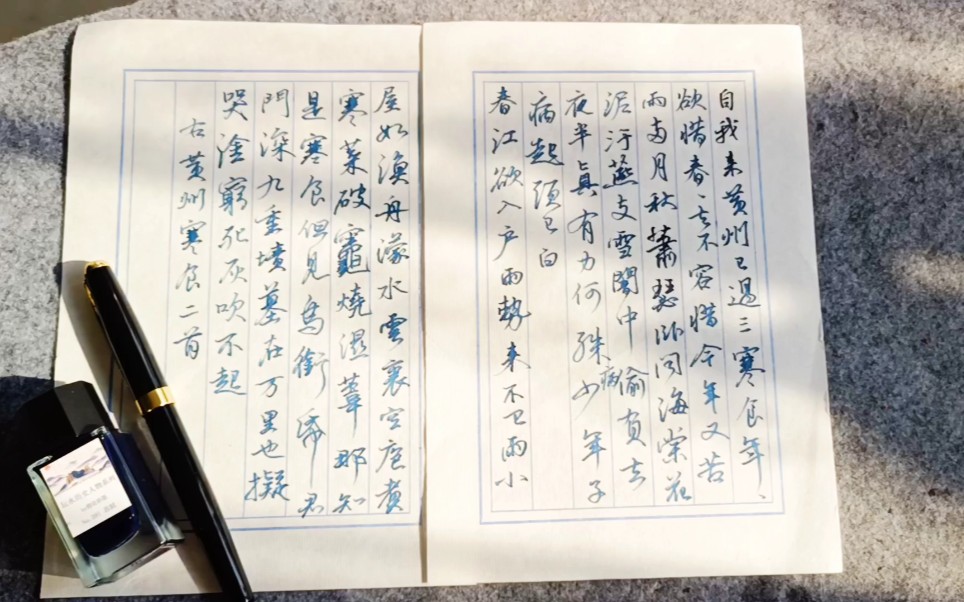 自我来黄州已過三寒食年、
欲惜春〻去不容惜今年又苦
雨兩月秋蕭瑟卧闻海棠花
泥汙燕支雪闇中偷負去
夜半真有力何殊病少年子
病起頭已白
春江欲入户雨勢来不已雨小
屋如漁舟濛水雲裏空庖煮
寒菜破竈燒濕葦那知
是寒食但見烏銜帋君
門深九重墳墓在万里也擬
哭塗窮死灰吹不起
右黄州寒食二首